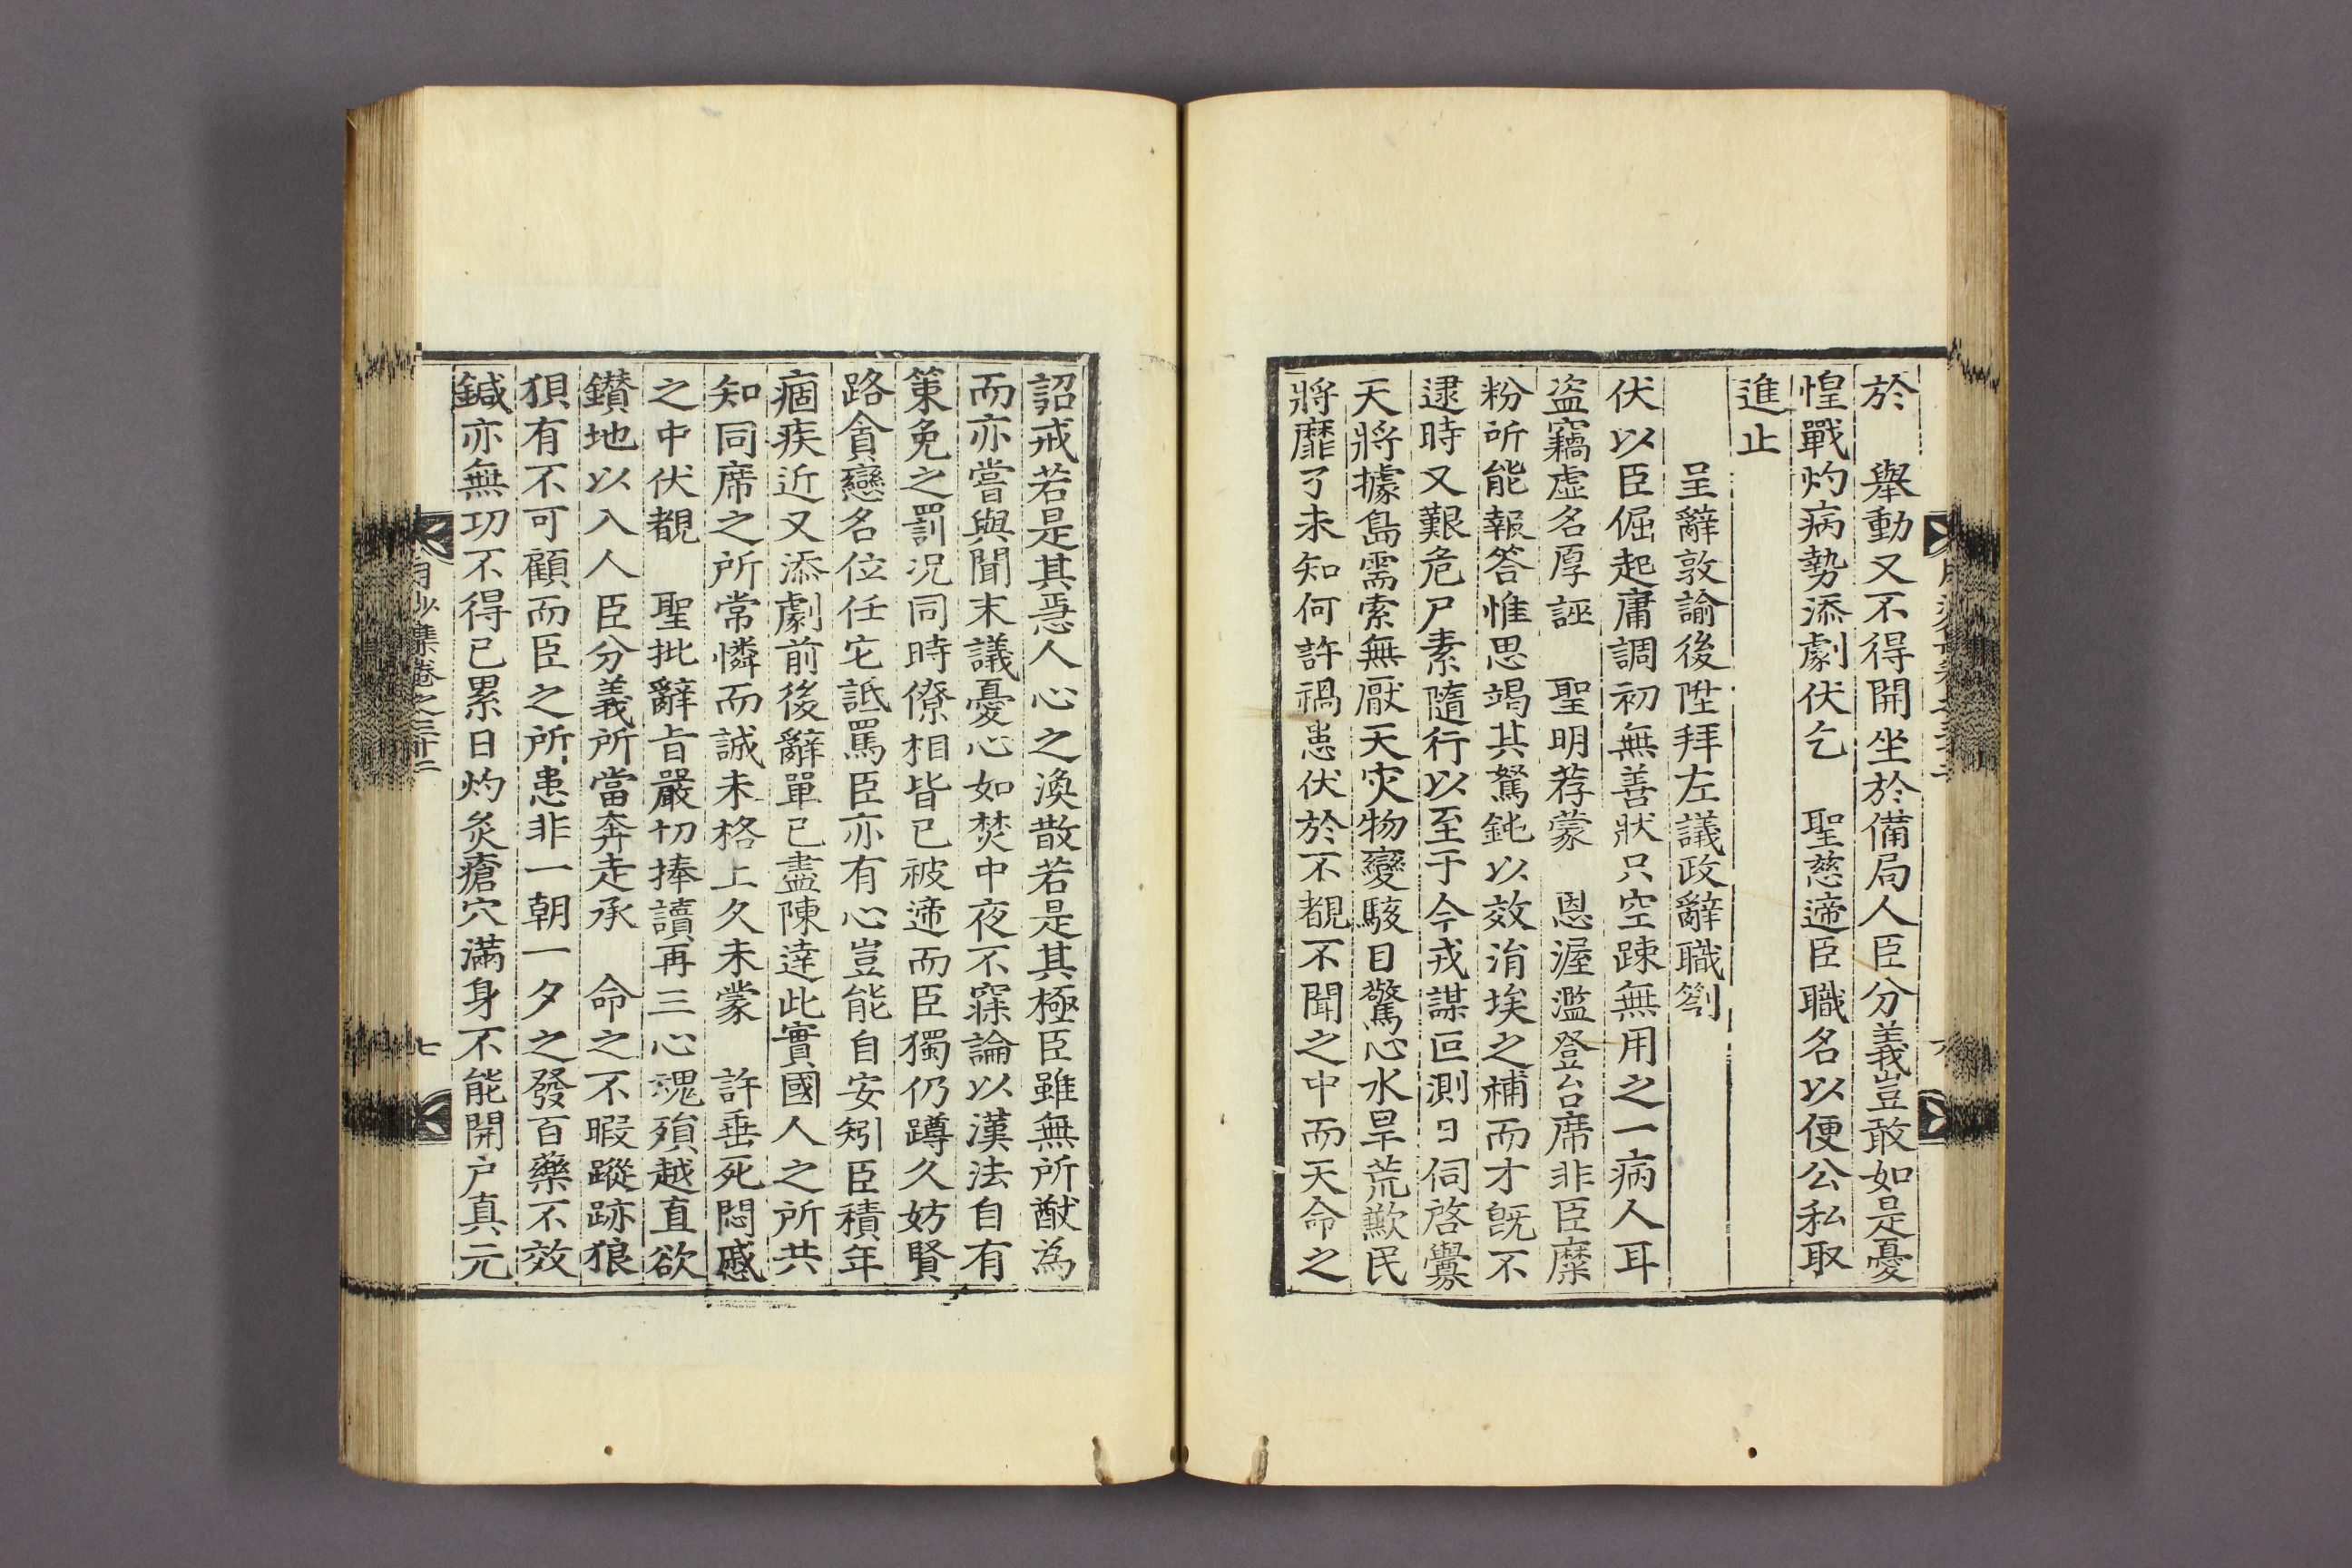 於 舉動又不得開坐於備局人臣分義豈敢如是憂
惶戰灼病勢添劇伏乞 聖慈遞臣職名以便公私取
進止
呈辭敦諭後陞拜左議政辭職劄
伏以臣倔起庸調初無善狀只空踈無用之一病人耳
盗竊虛名厚誣 聖明荐蒙 恩渥濫登台席非臣糜
粉所能報答惟思竭其駑鈍以效涓埃之補而才旣不
逮時又艱危尸素隨行以至于今戎謀叵測日伺啓釁
天將據島需索無厭天灾物變駭目驚心水旱荒歉民
將靡孑未知何許禍患伏於不覩不聞之中而天命之
詔戒若是其惎人心之渙散若是其極臣雖無所猷為
而亦嘗與聞末議憂心如焚中夜不寐論以漢法自有
策免之罰况同時僚相皆已被遞而臣獨仍蹲久妨賢
路貪戀名位任它詆罵臣亦有心豈能自安矧臣積年
痼疾近又添劇前後辭單已盡陳達此實國人之所共
知同席之所常憐而誠未格上久未蒙 許垂死悶慼
之中伏覩 聖批辭旨嚴切捧讀再三心魂殞越直欲
鑚地以入人臣分義所當奔走承 命之不暇蹤跡狼
狽有不可顧而臣之所患非一朝一夕之發百藥不效
鍼亦無功不得已累日灼灸瘡穴滿身不能開户真元
月沙集卷之三十二
七